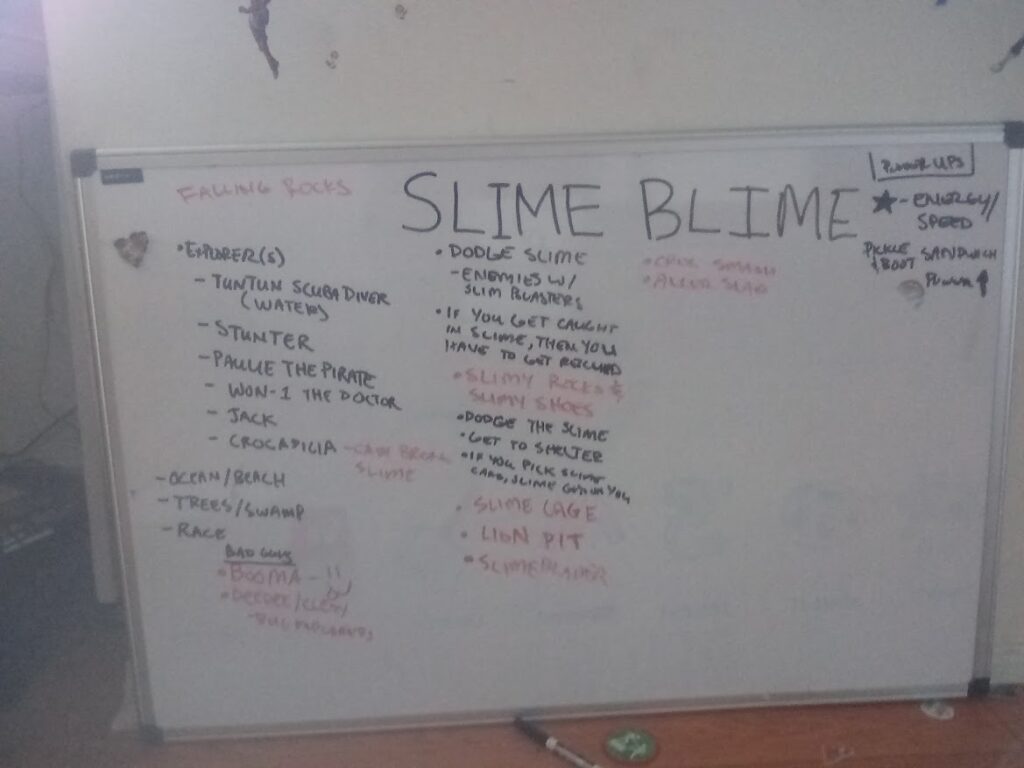 FALLING ROCKS
SLIME BLIME
• EXPLORER(S)
- TUNTUN SCUBA DIVER
(WATER)
- STUNTER
- PAULIE THE PIRATE
- WON-1 THE DOCTOR
- JACK
- CROCADILIA - CAN BREAK
SLIME
- OCEAN/BEACH
- TREES/SWAMP
- RACE
BAD GUYS
• BOOMA -
• DEEDEE/
• DODGE SLIME
- ENEMIES W/
SLIM BLASTERS
• IF YOU GET CAUGHT
IN SLIME, THEN YOU
HAVE TO GET
• SLIMY ROCKS &
SLIMY SHOES
• DODGE THE SLIME
• GET TO SHELTER
• IF YOU PICK SLIME
CARD, SLIME ON YOU
• SLIME CAGE
• LION PIT
• SLIME
• SMASH
• SLAP
POWER UPS
★ - ENERGY/
SPEED
PICKLE SANDWICH
& BOOT POWER ↑